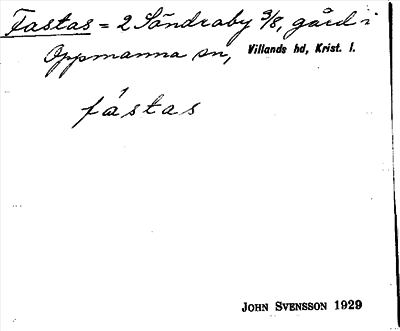 Fastas = 2 Sändraby 3/8, gård i
Oppmanna sn, Villands hd, Krist. l.
fástas
JOHN SVENSSON 1929